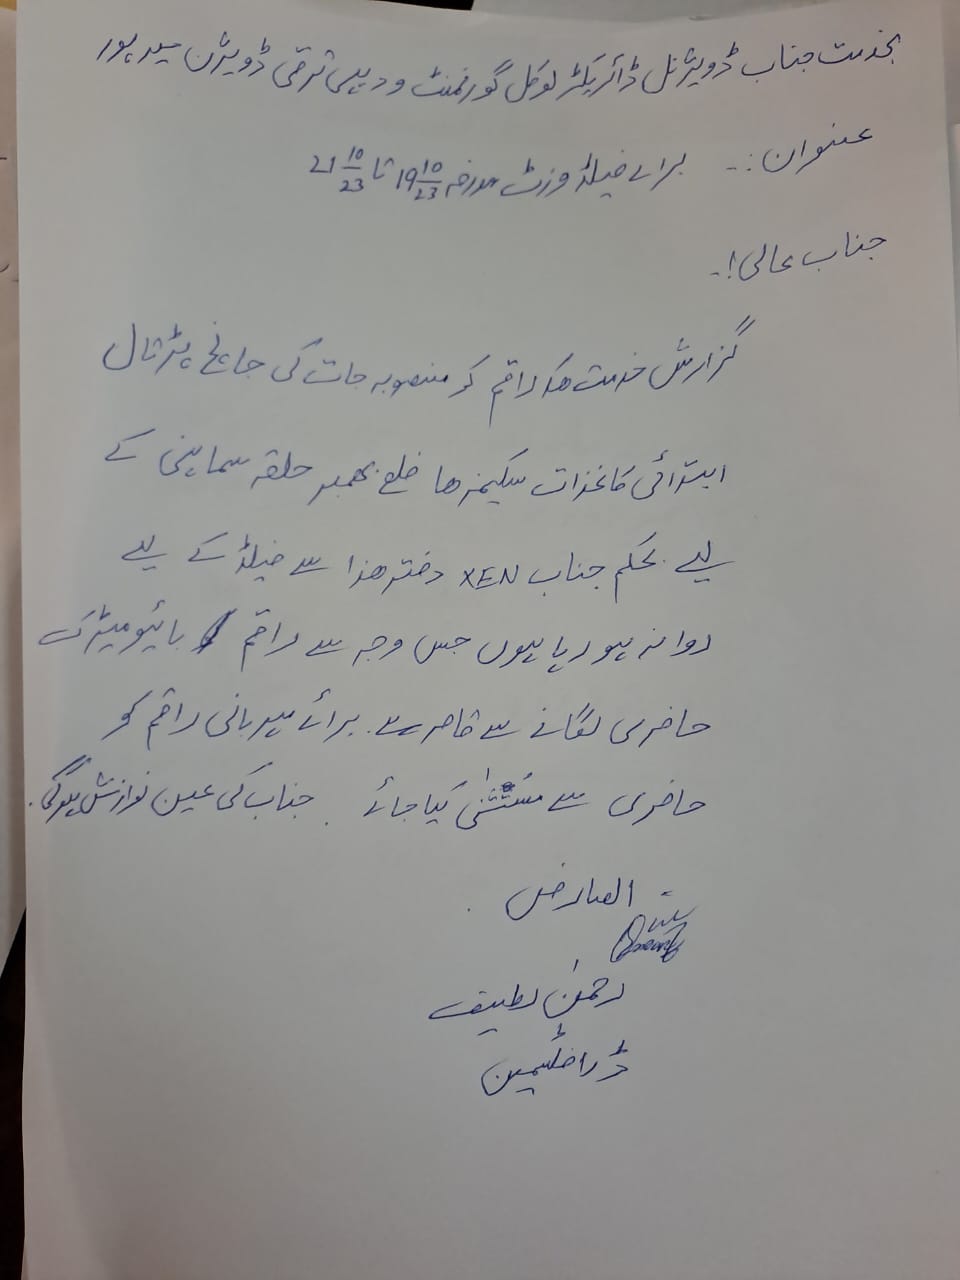 بخدمت جناب ڈویژنل ڈائریکٹر لوکل گورنمنٹ و دیہی ترقی ڈویژن میرپور
عنوان :۔ برائے فیلڈ وزٹ مورخہ 19 10/23 تا 21 10/23
جناب عالی!۔
گزارش خدمت ہیکہ راقم کو منصوبہ جات کی جانچ پڑتال
ابتدائی کاغذات سکیم ھا ضلع بھمبر حلقہ سماہنی کے
لیے بحکم جناب XEN دفتر ھذا سے فیلڈ کے لیے
روانہ ہو رہا ہوں جس وجہ سے راقم بائیو میٹرک
حاضری لگانے سے قاصر ہے۔ برائے مہربانی راقم کو
حاضری سے مستثنیٰ کیا جائے۔ جناب کی عین نوازش ہوگی۔
العارض
رحمٰن لطیف
ڈرافٹسمین